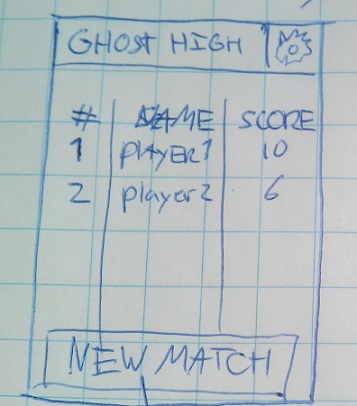 GHOST HIGH
# NAME SCORE
1 PLAYER1 10
2 player2 6
NEW MATCH